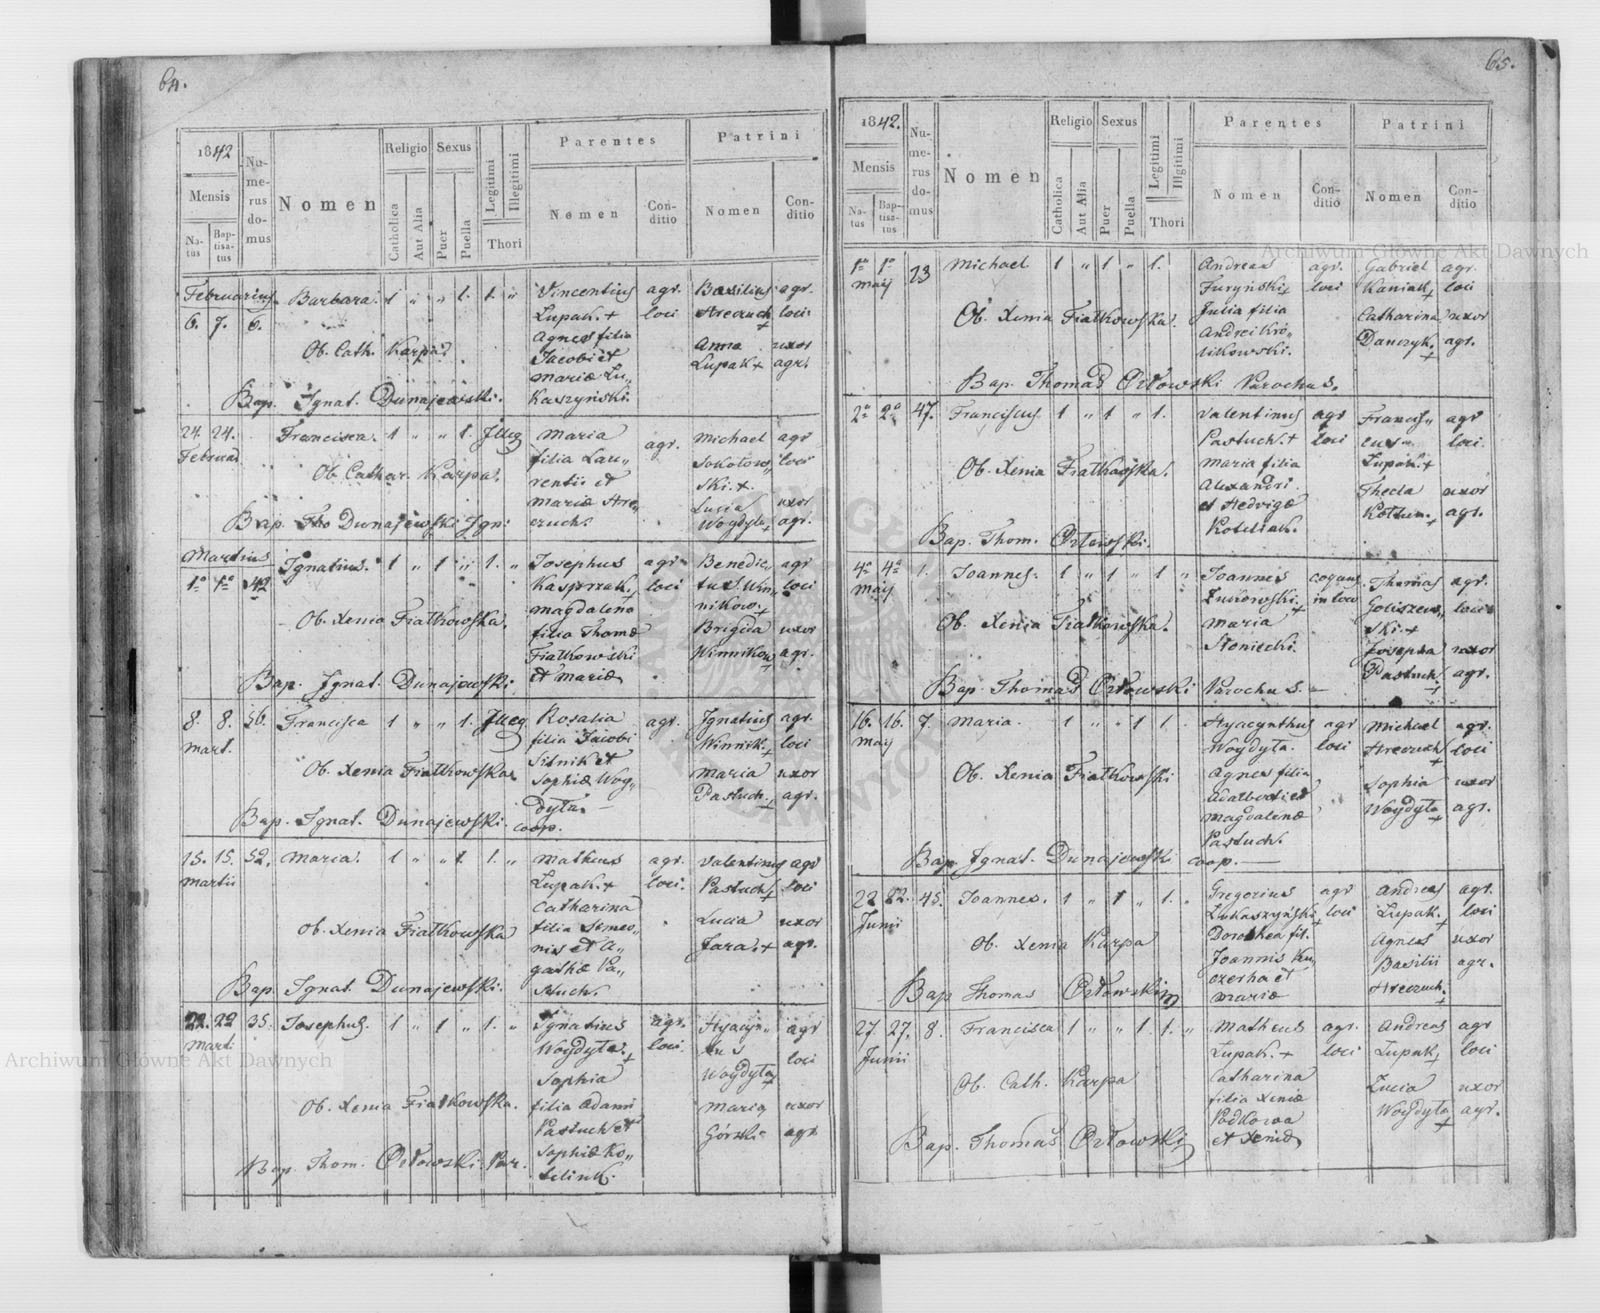 64.
1842
Mensis
Na-
tus
Bap-
tisa-
tus
Nu-
me-
rus
do-
mus
Nomen
Religio
Catholica
Aut Alia
Sexus
Puer
Puella
Legitimi
Illegitimi
Thori
Parentes
Nomen
Con-
ditio
Patrini
Nomen
Con-
ditio
Februarius Barbara. 1 " " 1. 1. " Vincentius agr. Basilius agr.
6. 7. 6. Lupak. + loci Hreczuch + loci
Agnes filia Anna uxor
Ob. Cath. Karpa. Jacobi et Lupak + agr.
Mariæ Lu„
Bap. Ignat. Dunajewski. kaszyński.
24. 24. Francisca. 1 " " 1. Illeg Maria agr. Michael agr
Februar filia Lau„ Sokolow„ loci
Ob. Cathar. Karpa. rentii et ski. +
Mariæ Hre„ Lucia uxor
Bap. Dunajewski Ign: czuch. Woydyta + agr.
Martius Ignatius. 1 " 1 " 1. " Josephus agr Benedic„ agr
1º 1º 42 Kasprzak + loci tus Win„ loci
Magdalena nikow. +
Ob. Xenia Fiatkowska. filia Thomæ Brigida uxor
Fiatkowski Winnikow + agr.
Bap. Ignat. Dunajewski et Mariæ
8. 8. 56. Francisca 1 " " 1. Illeg Rosalia agr. Ignatius agr.
Mart. filia Jacobi Winnik. + loci
Sitnik et Maria uxor
Ob. Xenia Fiatkowska Sophiæ Woy„ Pastuch. + agr.
dyta.
Bap. Ignat. Dunajewski. coop.
15. 15. 52. Maria. 1 " " 1. 1. " Matheus agr. Valentinus agr
Martii Lupak. + loci. Pastuch + loci
Catharina Lucia uxor
Ob. Xenia Fiatkowska filia Simeo„ Jara. + agr.
nis et A„
gathæ Pa„
Bap. Ignat. Dunajewski. stuch.
22. 22 35. Josephus. 1 " 1 " 1. " Ignatius agr. Hyacyn„ agr
Marti Woydyta. + loci. tus loci
Sophia Woydyta +
Ob. Xenia Fiatkowska. filia Adami Maria uxor
Pastuch et Górski agr
Sophiæ Ko„
Bap. Thom. Ortowski. Par. telink.
65.
1842.
Mensis
Na-
tus
Bap-
tisa-
tus
Nu-
me-
rus
do-
mus
Nomen
Religio
Catholica
Aut Alia
Sexus
Puer
Puella
Legitimi
Illgitimi
Thori
Parentes
Nomen
Con-
ditio
Patrini
Nomen
Con-
ditio
1º 1º 23 Michael 1 " 1 " 1. Andreas agr. Gabriel agr.
May Furyński + loci Kaniak + loci
Julia filia Catharina uxor
Ob. Xenia Fiatkowska. Andrei Kró„ Danczyk. + agr.
likowski.
Bap. Thomas Ortowski Parochus.
2º 2º 47. Franciscus 1 " 1 " 1. Valentinus agr Francis„ agr
Pastuch. + loci cus loci.
Ob. Xenia Fiatkowska. Maria filia Lupak. +
Alexandri Thecla uxor
et Hedvigæ Kottun. + agr.
Bap. Thom. Ortowski. Koteliak.
4º 4º 1. Joannes. 1 " 1 " 1 " Joannes Thomas agr.
May Zurowski. + in loco Goliszew„ loci
Ob. Xenia Fiatkowska. Maria ski. +
Stoniecki. Josepha uxor
Bap. Thomas Ortowski Parochus. Pastuch + agr.
16. 16. 7. Maria. 1 " " 1 1. Hyacynthus agr Michael agr.
May Woydyta. loci Hreczuch + loci
Ob. Xenia Fiatkowski Agnes filia Sophia uxor
Adalberti et Woydyta + agr.
Magdalenæ
Pastuch.
Bap. Ignat. Dunajewski coop.
22 22. 45. Joannes. 1 " 1 " 1. " Gregorius agr Andreas agr.
Junii Lukaszyński + loci Lupak. + loci
Dorothea fil. Agnes uxor
Ob. Xenia Karpa Joannis Ku„ Basilii agr.
czerha et Hreczuch. +
Bap Thomas Ortowski Mariæ
27. 27. 8. Francisca 1 " " 1. 1. " Matheus agr. Andreas agr
Junii Lupak. + loci Lupak, loci
Ob. Cath. Karpa Catharina Lucia uxor
filia Xeniæ Woydyta + agr.
Podkowa
Bap. Thomas Ortowski et Xeniæ
Archiwum Główne Akt Dawnych
Archiwum Główne Akt Dawnych